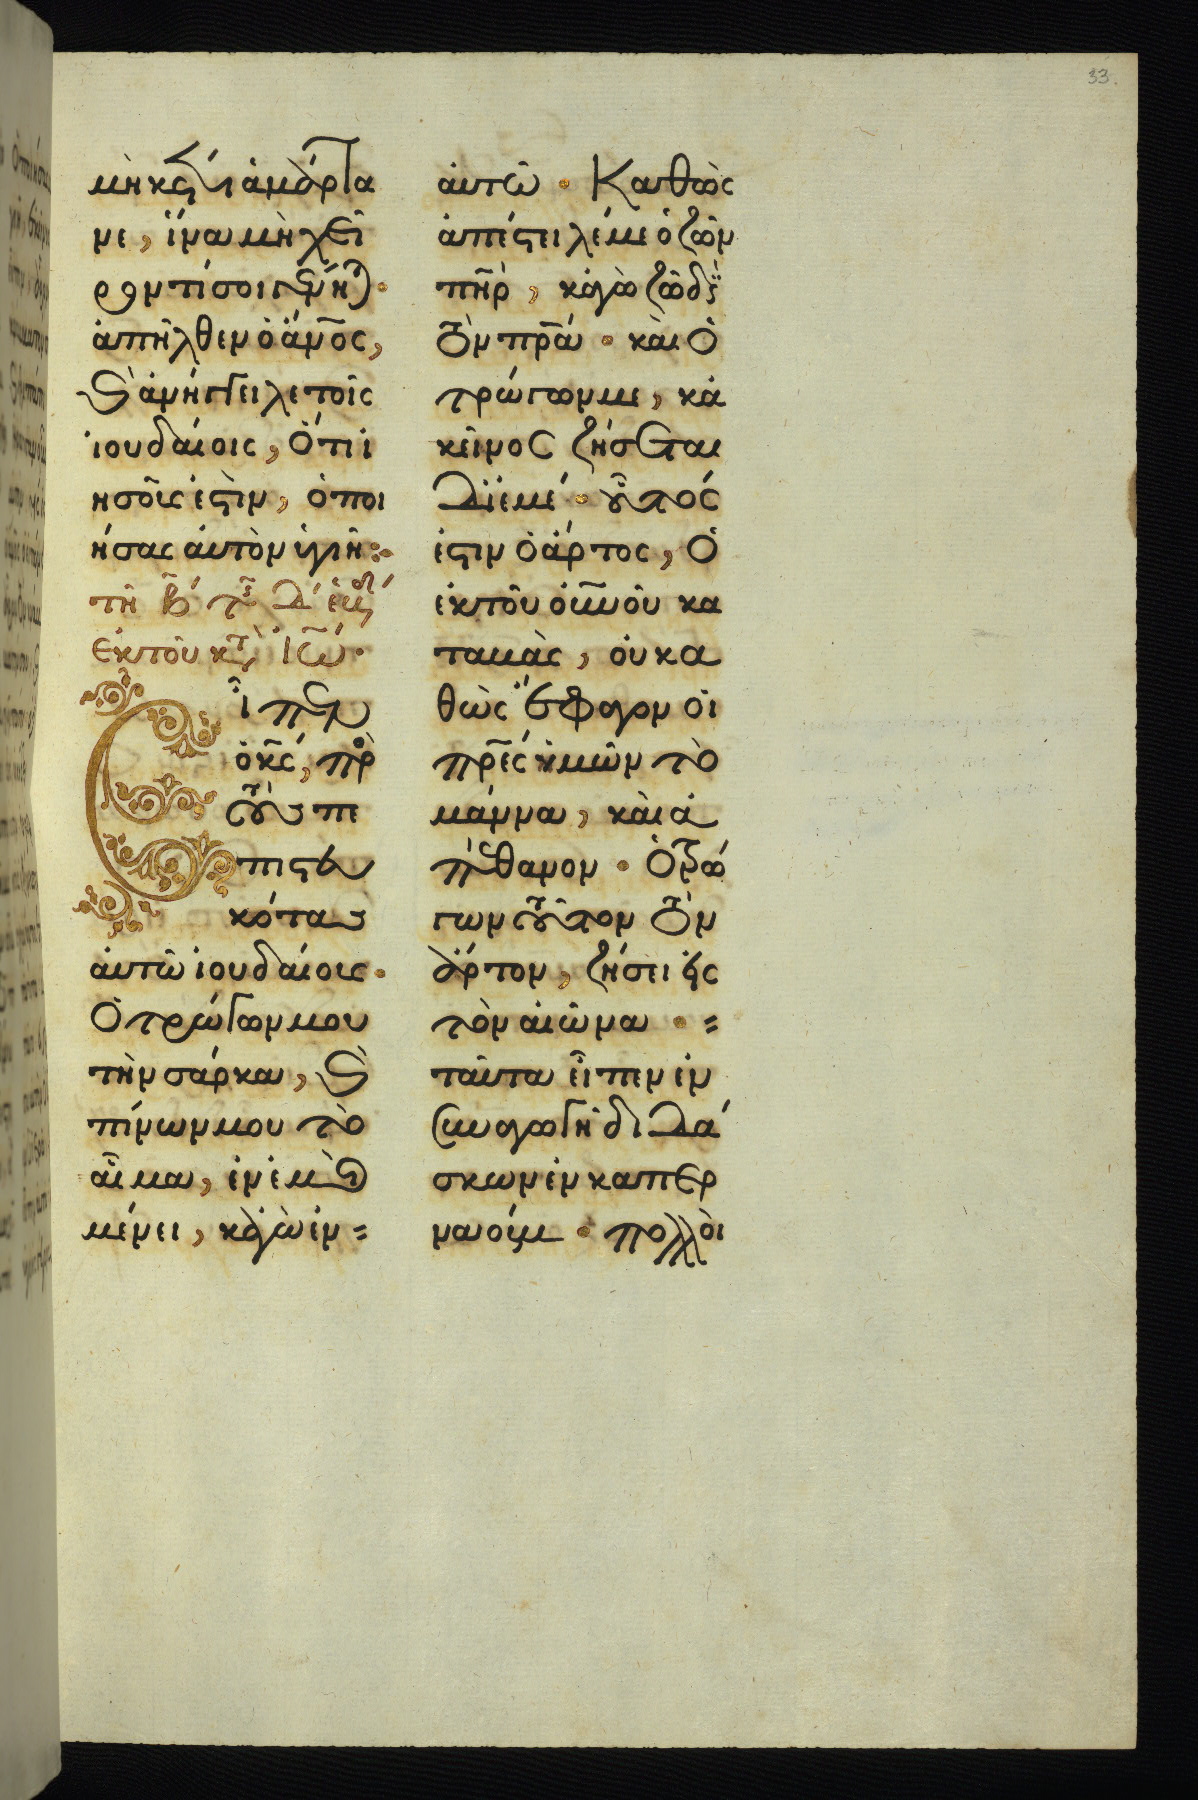 33.
μὴκέτι ἁμάρτα
νε, ἵνα μὴ χεῖ
ρόν τί σοι γένηται·
ἀπῆλθεν ὁ ἄν̅ος,
καὶ ἀνήγγειλε τοῖς
ἰουδαίοις, ὅτι ἰ
ησοῦς ἐστιν, ὁ ποι
ήσας αὐτὸν ὑγιῆ:
τῇ β̅
ἐκ τοῦ κατὰ Ἰω̅·
Εἶπεν
ὁ κ̅ς, πρὸ
τοὺς πε
πιστευ
κότας
αὐτῶ ἰουδαίοις·
Ὁ τρώγων μου
τὴν σάρκα, καὶ
πίνων μου τὸ
αἷμα, ἐν ἐμοὶ
μένει, κἀγὼ ἐν=
αὐτῶ· Καθὼς
ἀπέστειλέ με ὁ ζῶν
πη̅ρ, κἀγὼ ζῶ δι
τὸν πρ̅α· καὶ ὁ
τρώγων με, κἀ
κεῖνος ζήσεται
δι ἐμέ· οὗτός
ἐστιν ὁ ἄρτος, ὁ
ἐκ τοῦ οὐ̅νοῦ κα
ταβὰς, οὐ κα
θὼς ἔφαγον οἱ
πρ̅ες ὑμῶν τὸ
μάννα, καὶ ἀ
πέθανον· Ὁ τρώ
γων τοῦτον τὸν
ἄρτον, ζήσει εἰς
τὸν αἰῶνα·=
ταῦτα εἶπεν ἐν
συναγωγῇ διδά
σκων ἐν καπερ
ναούμ· πολλοὶ